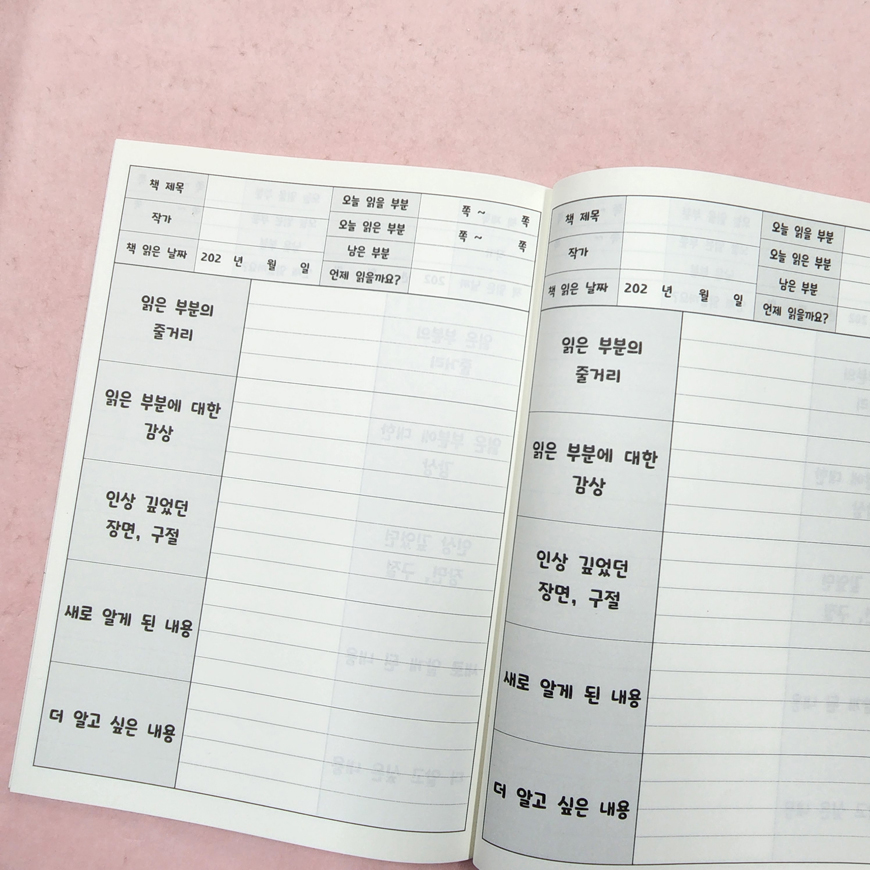 책 제목
오늘 읽을 부분
쪽 ~ 쪽
작가
오늘 읽은 부분
쪽 ~ 쪽
남은 부분
책 읽은 날짜
202 년 월 일
언제 읽을까요?
읽은 부분의
줄거리
읽은 부분에 대한
감상
인상 깊었던
장면, 구절
새로 알게 된 내용
더 알고 싶은 내용
책 제목
오늘 읽을 부분
작가
오늘 읽은 부분
남은 부분
책 읽은 날짜
202 년 월 일
언제 읽을까요?
읽은 부분의
줄거리
읽은 부분에 대한
감상
인상 깊었던
장면, 구절
새로 알게 된 내용
더 알고 싶은 내용